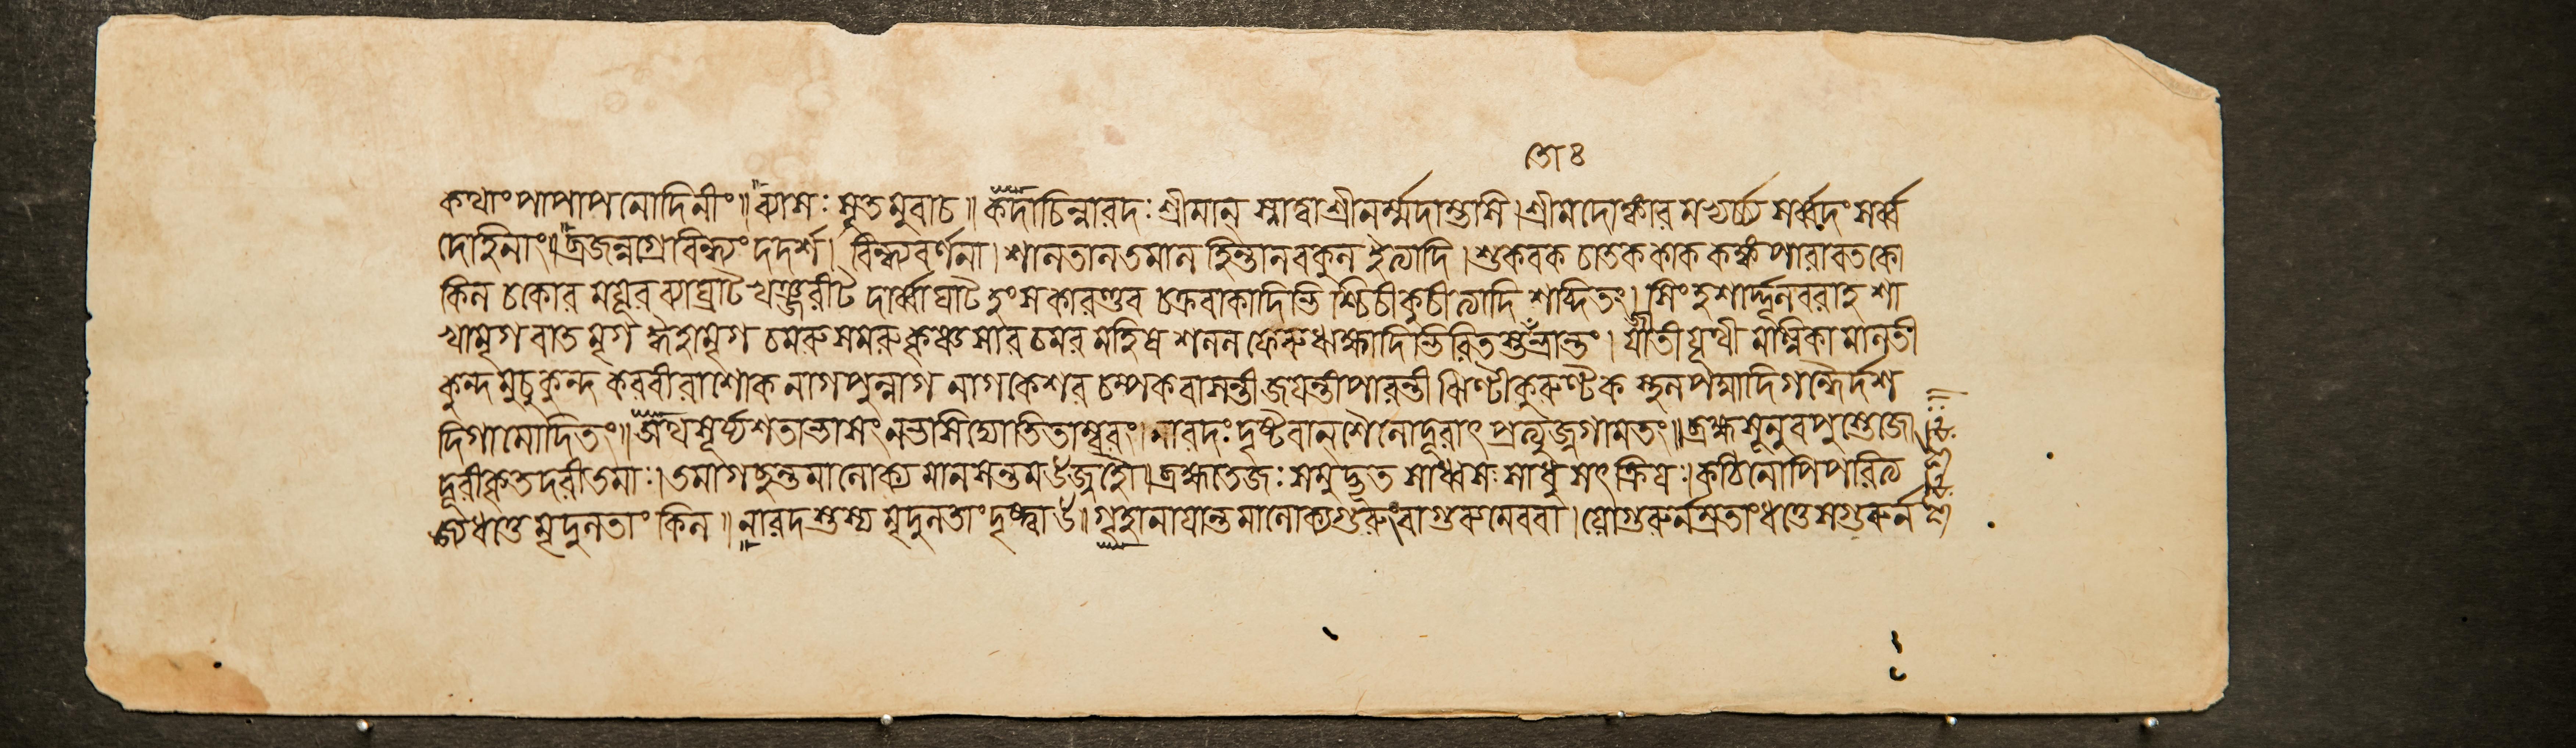 ৩৪
কথাং পাপাপনোদিনীং॥ ব্যাসঃ সূতমুবাচ॥ কদাচিন্নারদঃ শ্রীমান্ স্নাত্বা শ্রীনর্ম্মদাম্ভসি। শ্রীমদোঙ্কারমভ্যর্চ্চ্য সর্ব্বদং সর্ব্ব
দেহিনাং॥ ব্রজন্নগ্রে বিন্ধ্যং দদর্শ। বিন্ধ্যবর্ণনা। শাল তাল তমাল হিন্তাল বকুল ইত্যাদি। শুক বক চাতক কাক কঙ্ক পারাবত কো
কিল চকোর ময়ূর ব্যাঘ্রাট খঞ্জরীট দার্ব্বাঘাট হংস কারণ্ডব চক্রবাকাদিভি শ্চিচীকুচীত্যাদি শব্দিতং। সিংহ শার্দ্দূল বরাহ শা
খামৃগ বাতমৃগ চমরু চমর মহিষ শলল ফেরু
কুন্দ মুচুকুন্দ করবীরাশোক নাগপুন্নাগ নাগকেশর চম্পক বাসন্তী জয়ন্তী পারন্তী ঝিণ্টী কুরুণ্টক স্থলপদ্মাদিগন্ধৈর্দশ
দিগামোদিতং॥ অথ সূর্য্যশতাভাসং নভসি দ্যোতিতাম্বরং। নারদঃ দৃষ্টবান্ শৈলো দূরাৎ প্রত্যুজ্জগাম তং॥ ব্রহ্মসূনুবপুস্তেজো
দূরীকৃতদরীতমাঃ। তমাগচ্ছন্তমালোক্য মানসন্তম জহৌ॥ ব্রহ্মতেজঃ সমুদ্ভূত সাধ্বসঃ সাধু সৎক্রিয়ঃ। কঠিনোপি পরিত্য
জ্য ধত্তে মৃদুলতাং কিল॥ নারদস্তস্য মৃদুলতাং দৃষ্ট্বা॥ গৃহানায়ান্তমালোক্য গুরুং বাগুরুমেববা। যো গুরুর্নম্রতাং ধত্তে স গুরুর্ন